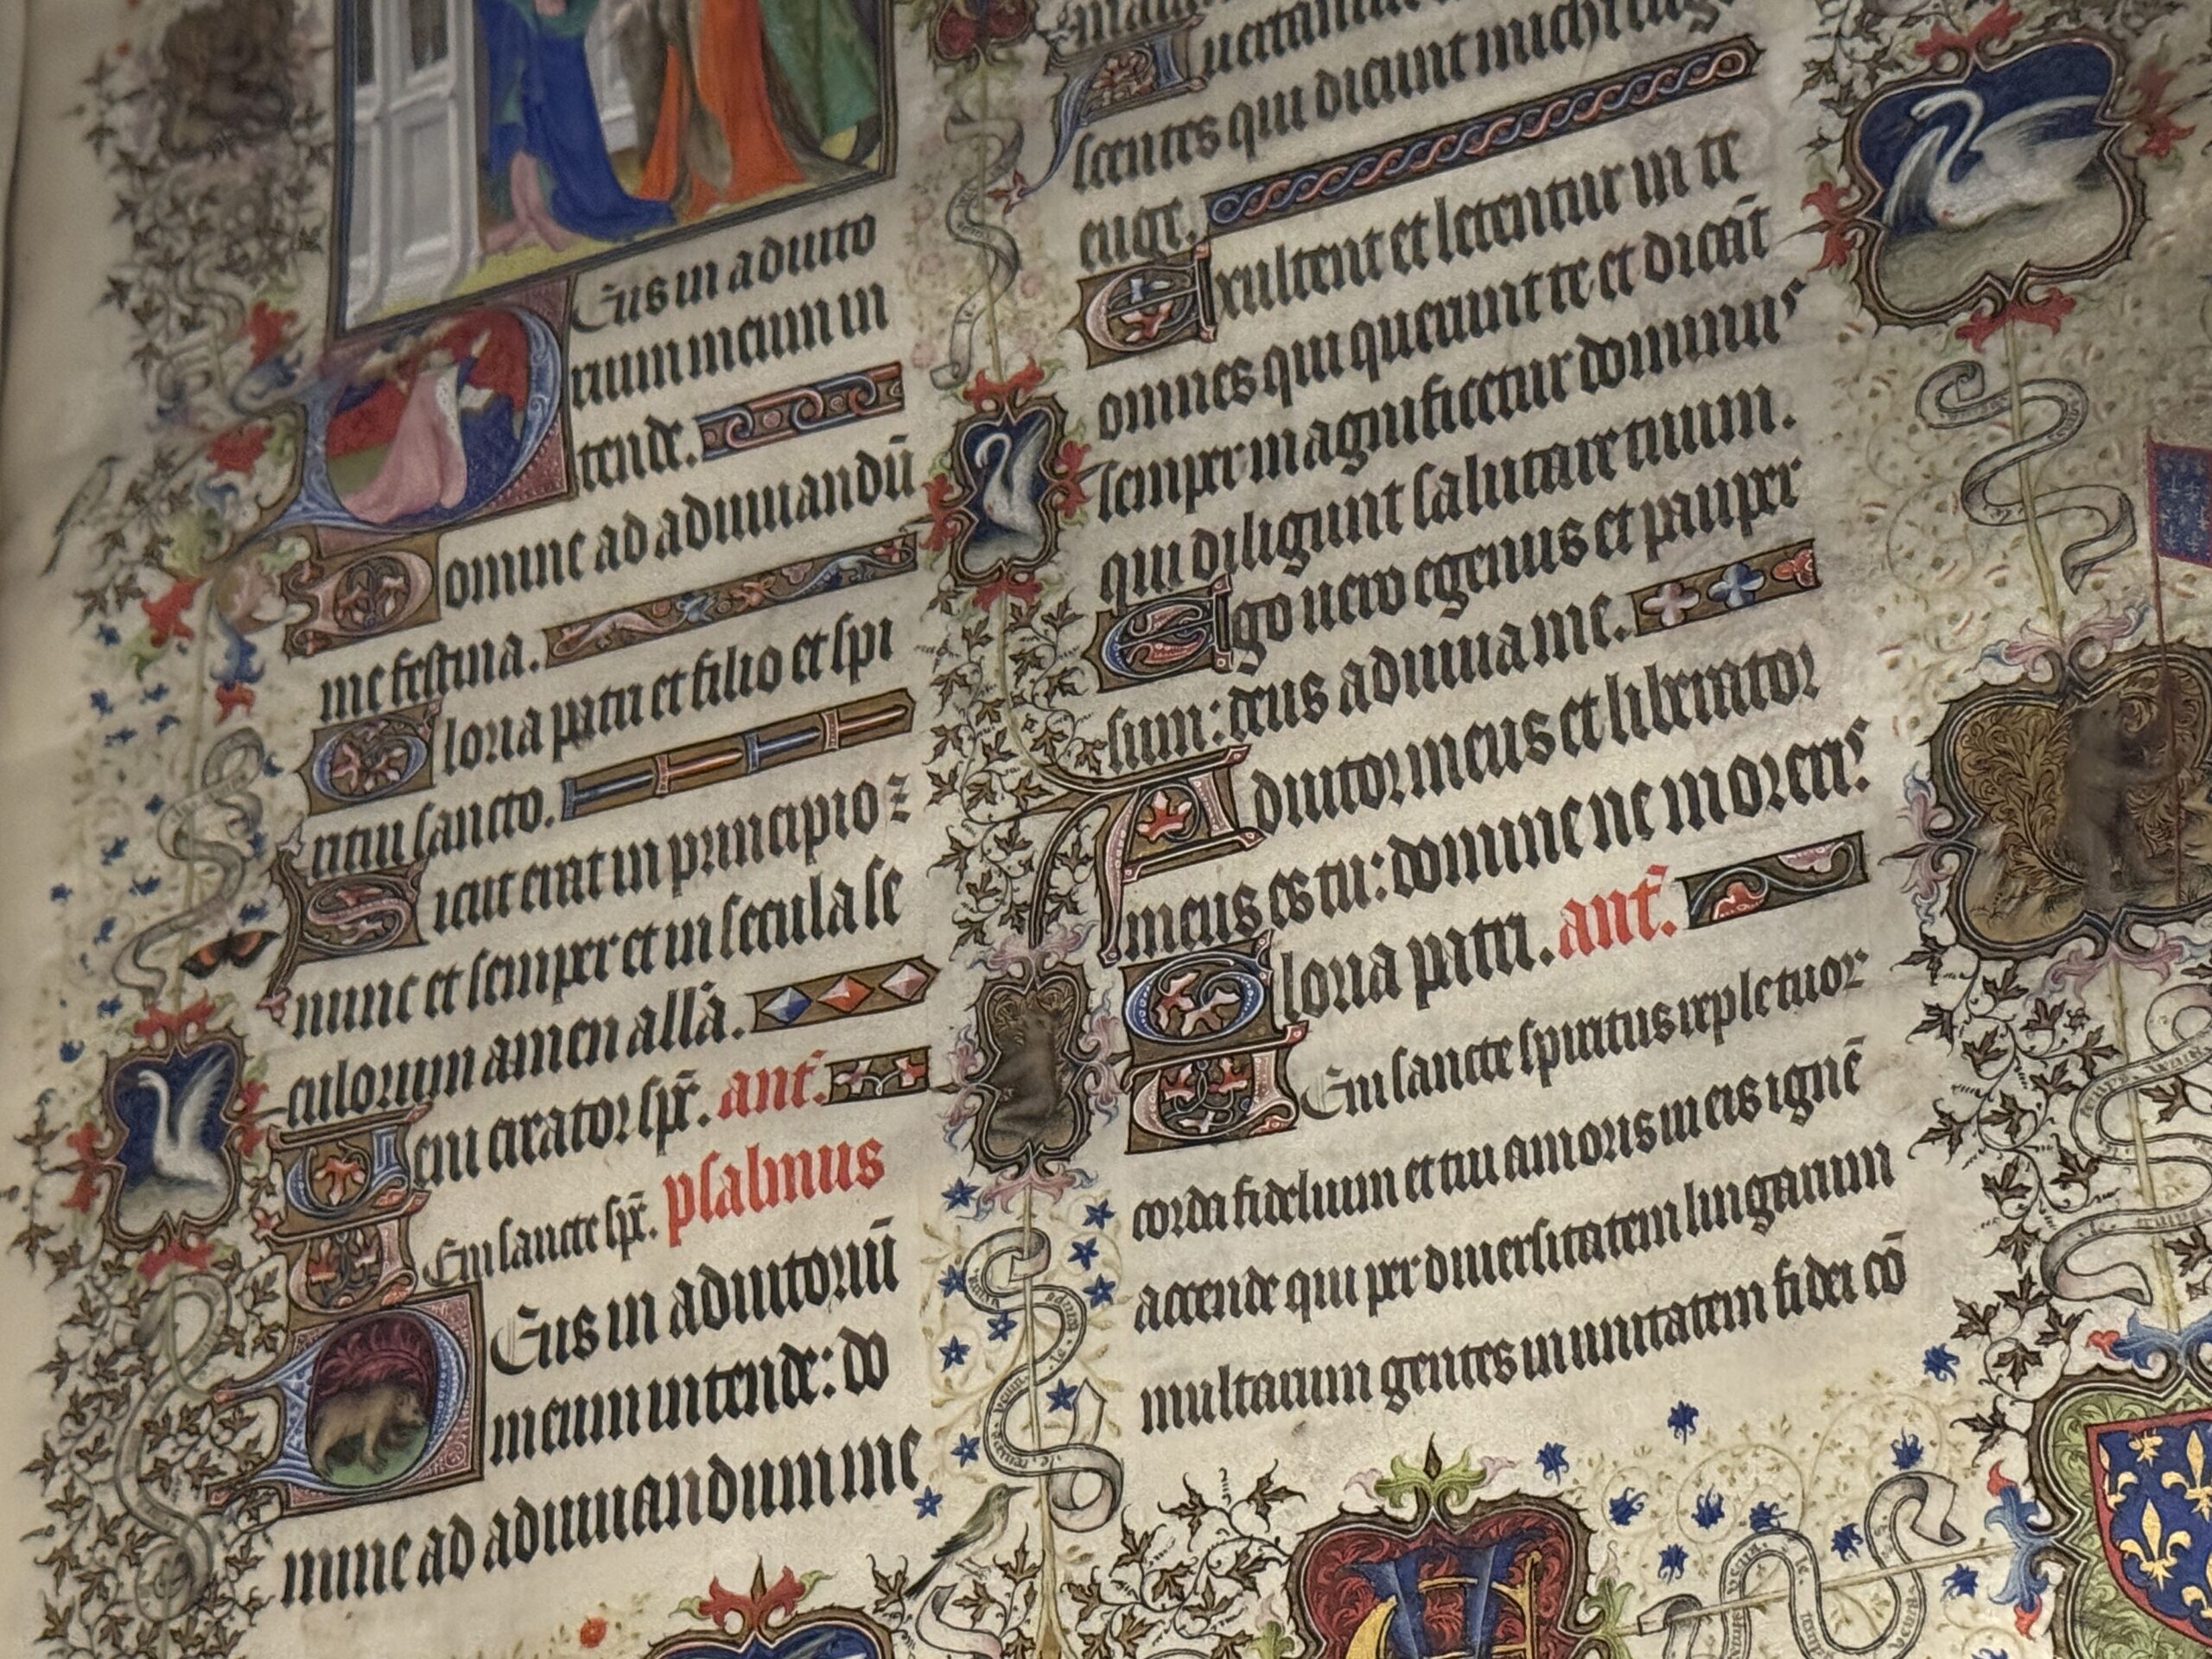 Eus in adiuto
rium meum in
tende.
Domine ad adiuuandū
me festina.
Gloria patri et filio et spi
ritui sancto.
Sicut erat in principio ⁊
nunc et semper et in secula se
culorum amen all'a.
Veni creator sp̄c. ant'.
Veni sancte sp̄c. psalmus
Deus in adiutoriū
meum intende: do
mine ad adiuuandum me
Auertantur
scentes qui dicunt michi euge
euge.
Exultent et letentur in te
omnes qui querunt te et dicāt
semper magnificetur dominus
qui diligunt salutare tuum.
Ego uero egenus et pauper
sum: deus adiuua me.
Adiutor meus et liberator
meus es tu: domine ne moreris.
Gloria patri. ant'.
Veni sancte spiritus reple tuor
corda fidelium et tui amoris in eis ignē
accende qui per diuersitatem linguarum
multarum gentes in unitatem fidei cō